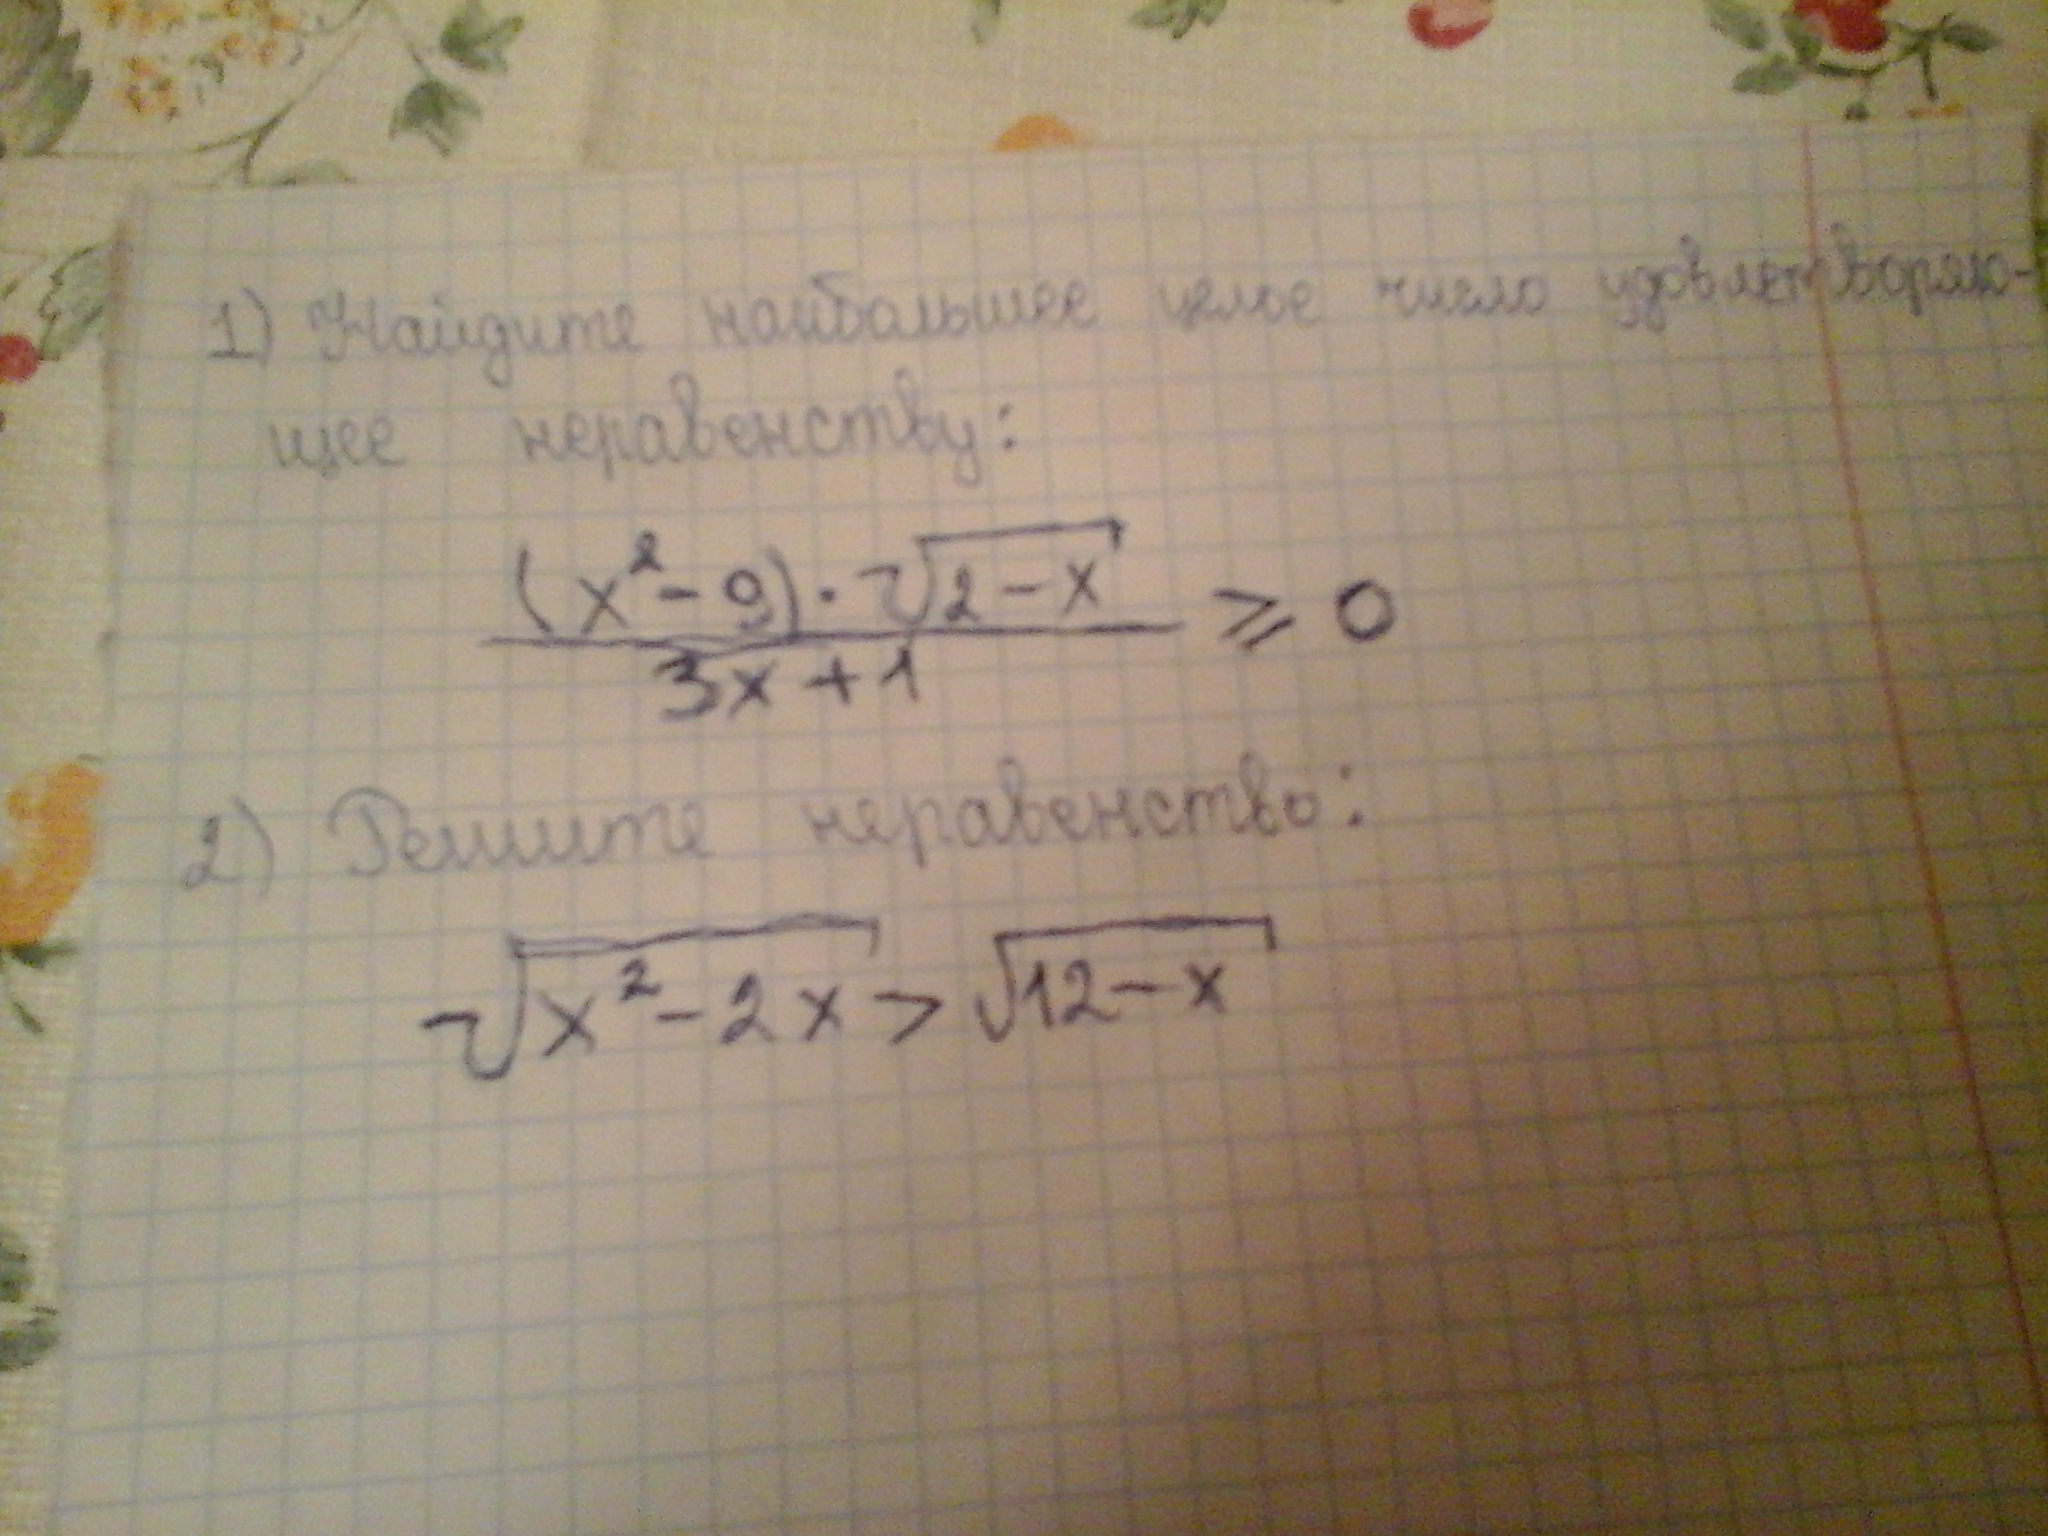 1) Найдите наибольшее целое число удовлетворяю-
щее неравенству:
(x² - 9) · √(2 - x) / (3x + 1) ≥ 0
2) Решите неравенство:
√(x² - 2x) > √(12 - x)